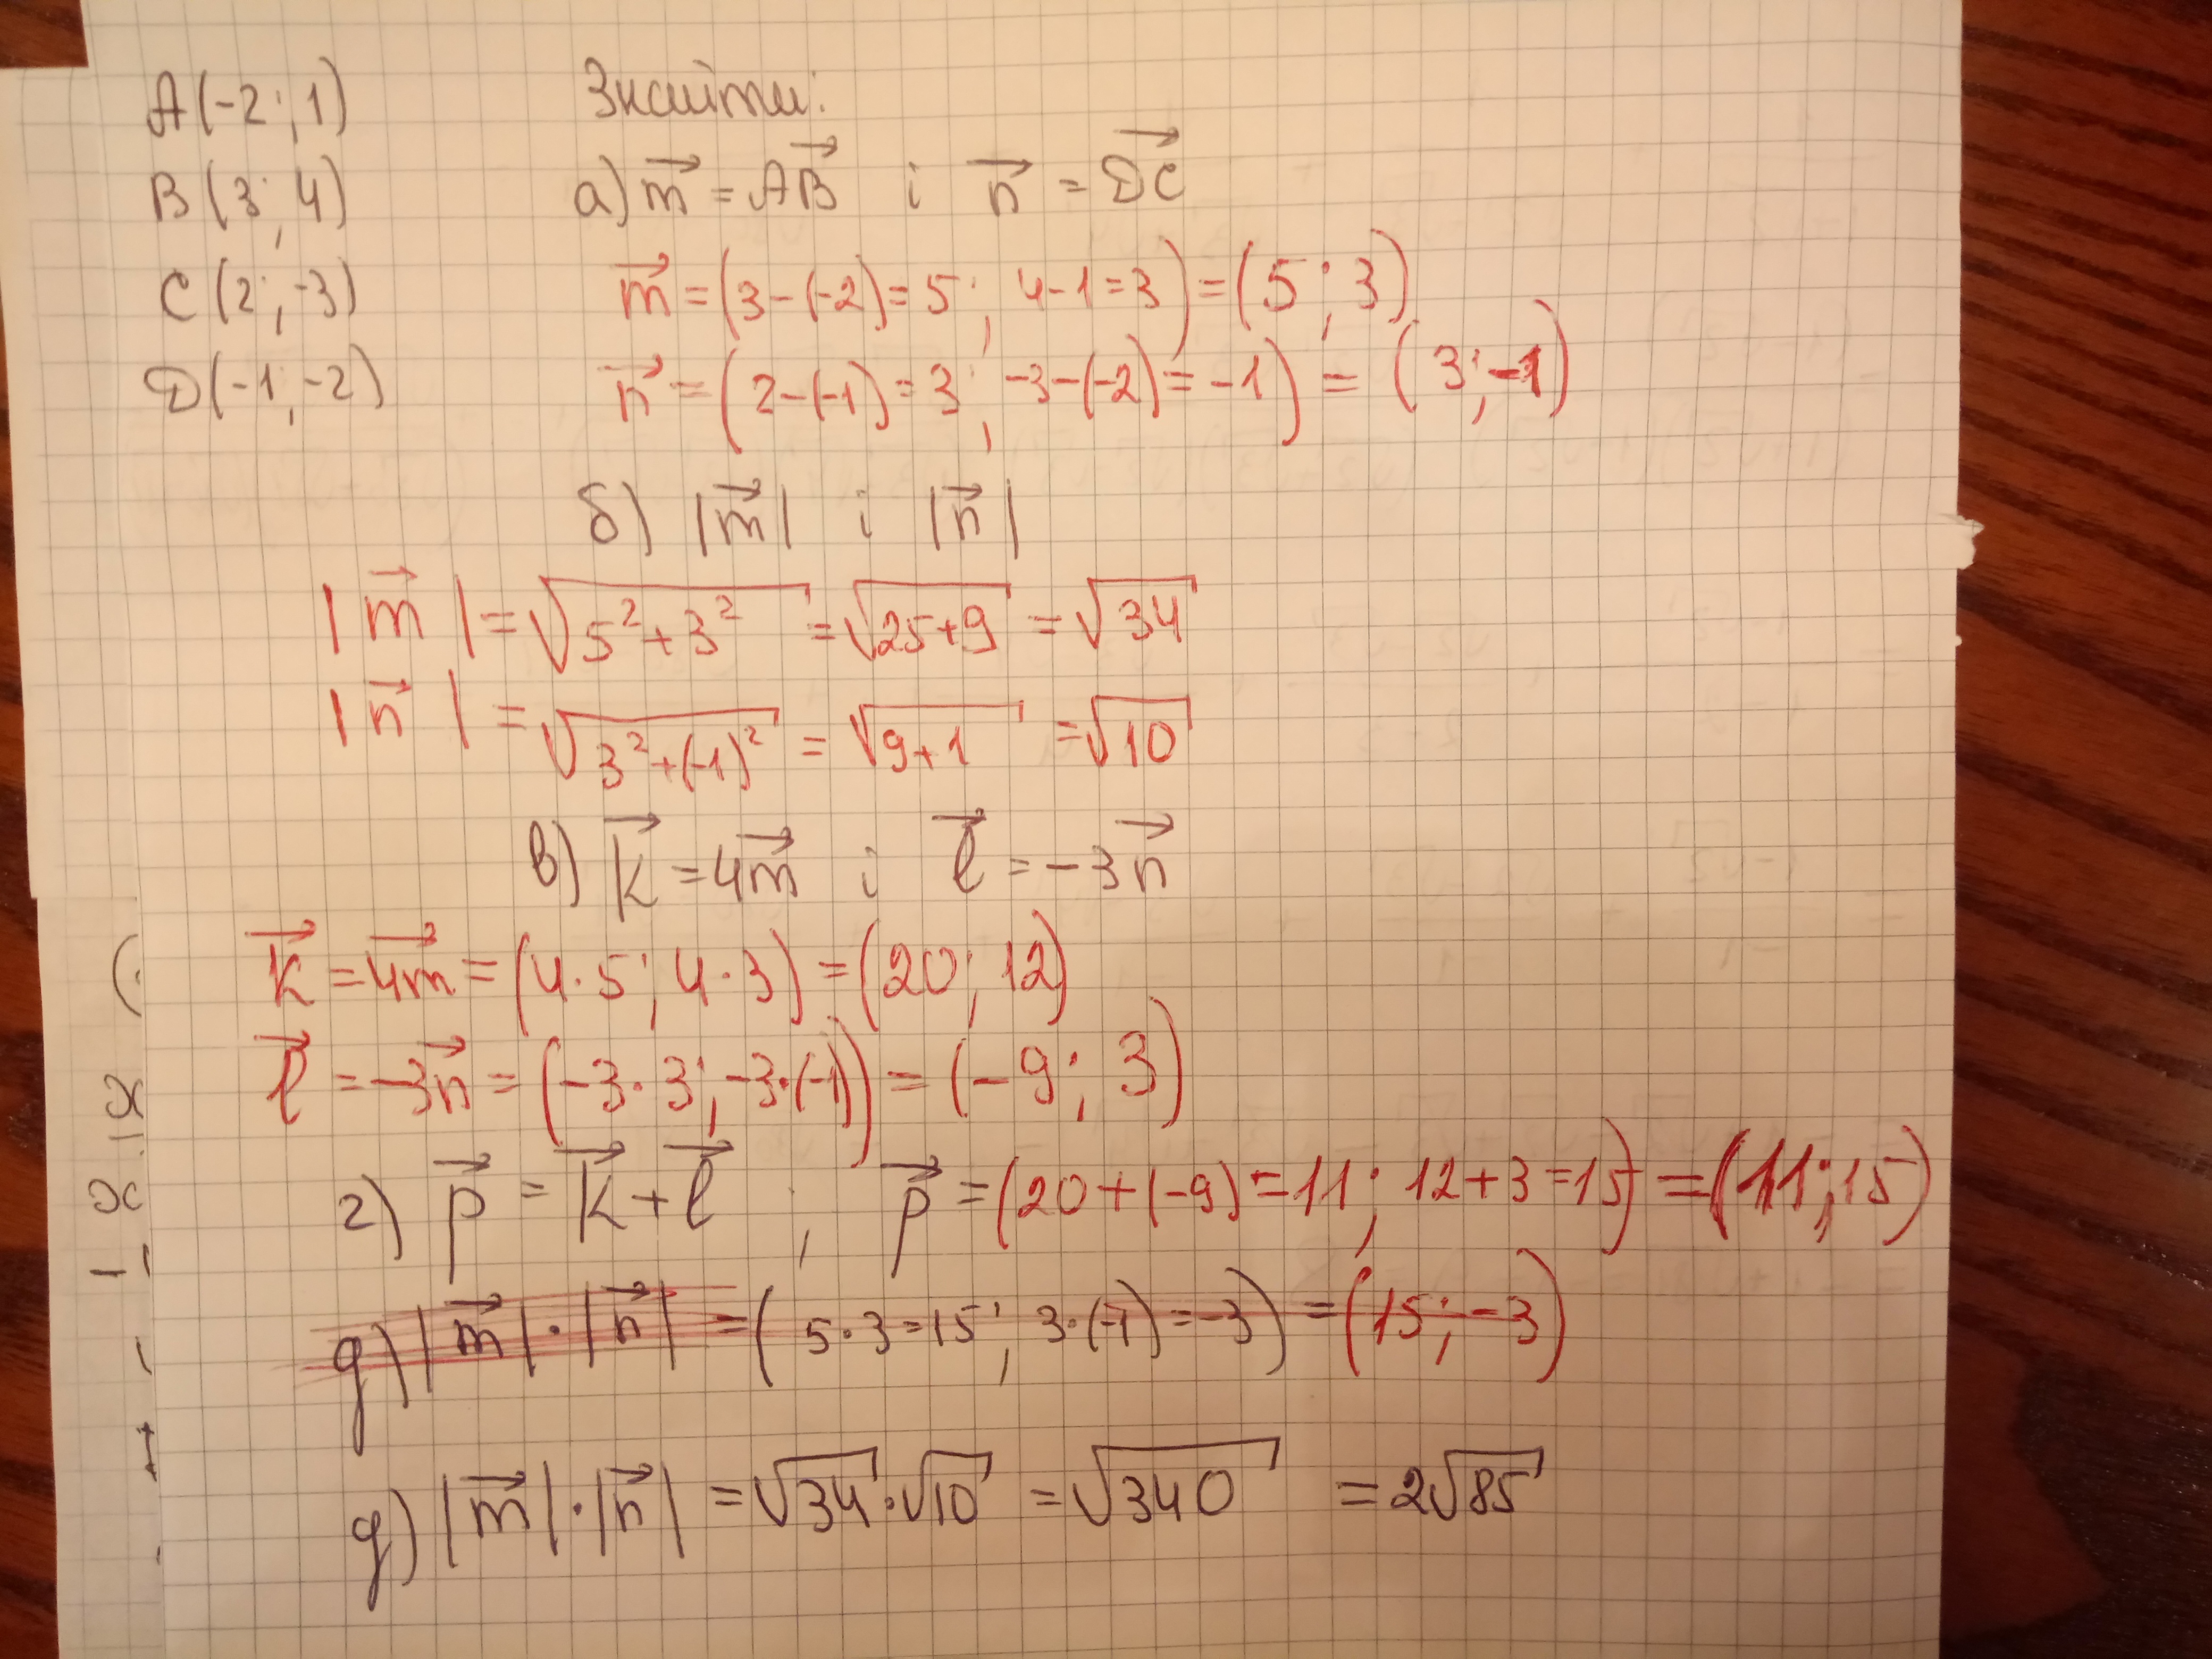 A(-2; 1)
B(3; 4)
C(2; -3)
D(-1; -2)
Знайти:
а) m⃗ = AB⃗ і n⃗ = DC⃗
m⃗ = (3-(-2)=5; 4-1=3) = (5; 3)
n⃗ = (2-(-1)=3; -3-(-2)=-1) = (3; -1)
б) |m⃗| і |n⃗|
|m⃗| = √(5²+3²) = √(25+9) = √34
|n⃗| = √(3²+(-1)²) = √(9+1) = √10
в) k⃗ = 4m⃗ і l⃗ = -3n⃗
k⃗ = 4m⃗ = (4·5; 4·3) = (20; 12)
l⃗ = -3n⃗ = (-3·3; -3·(-1)) = (-9; 3)
г) p⃗ = k⃗ + l⃗ ; p⃗ = (20+(-9)=11; 12+3=15) = (11; 15)
д) |m⃗|·|n⃗| = (5·3=15; 3·(-1)=-3) = (15; -3)
д) |m⃗|·|n⃗| = √34·√10 = √340 = 2√85